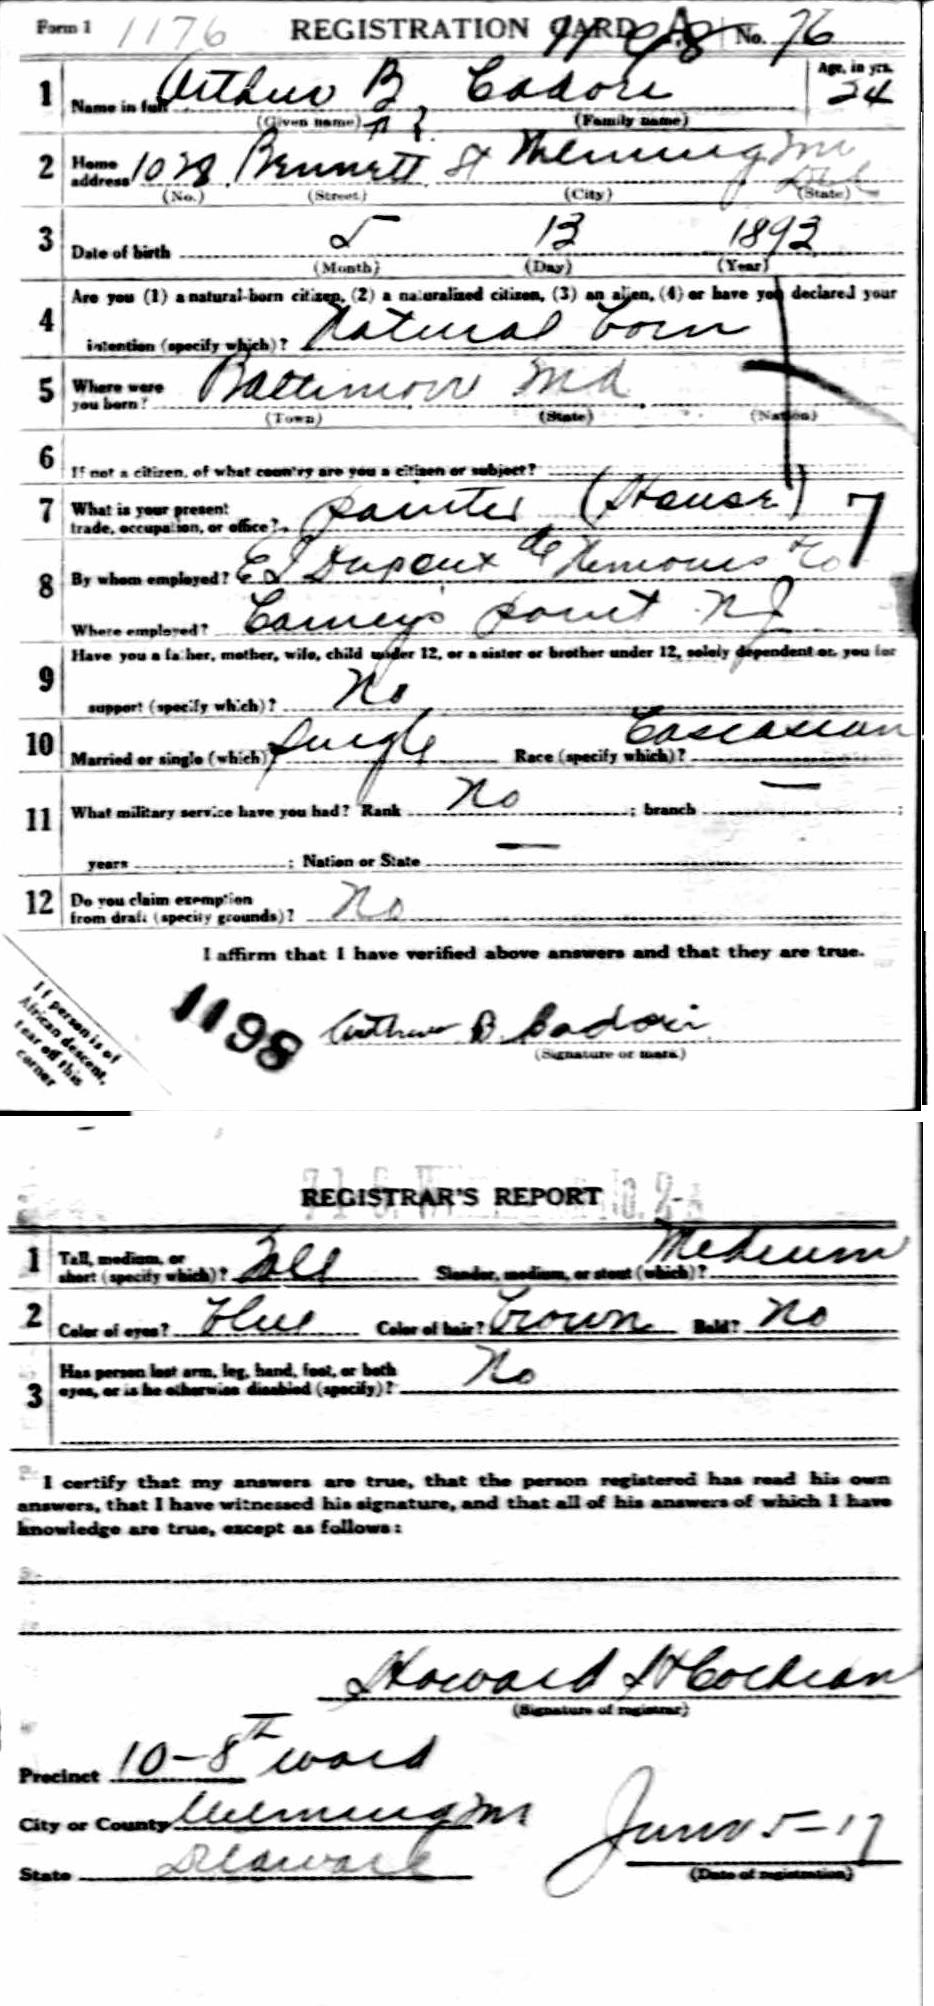 Form 1 1176 REGISTRATION CARD No. 76
1 Name in full Arthur B Cadori Age, in yrs. 24
(Given name) (Family name)
2 Home address 1028 Bennett St Wilmington Del
(No.) (Street) (City) (State)
3 Date of birth 5 13 1893
(Month) (Day) (Year)
4 Are you (1) a natural-born citizen, (2) a naturalized citizen, (3) an alien, (4) or have you declared your
intention (specify which)? Natural born
5 Where were you born? Baltimore Md
(Town) (State) (Nation)
6 If not a citizen, of what country are you a citizen or subject?
7 What is your present trade, occupation, or office? painter (House) 7
8 By whom employed? E I Dupont de Nemours & Co
Where employed? Carney's Point N J
9 Have you a father, mother, wife, child under 12, or a sister or brother under 12, solely dependent on you for
support (specify which)? No
10 Married or single (which) Single Race (specify which)? Cascasian
11 What military service have you had? Rank No ; branch — ;
years ; Nation or State —
12 Do you claim exemption from draft (specify grounds)? No
I affirm that I have verified above answers and that they are true.
If person is of
African descent,
tear off this
corner
1198
Arthur B. Cadori
(Signature or mark)
REGISTRAR'S REPORT
1 Tall, medium, or short (specify which)? Tall Slender, medium, or stout (which)? Medium
2 Color of eyes? Blue Color of hair? Brown Bald? No
3 Has person lost arm, leg, hand, foot, or both eyes, or is he otherwise disabled (specify)? No
I certify that my answers are true, that the person registered has read his own
answers, that I have witnessed his signature, and that all of his answers of which I have
knowledge are true, except as follows:
Howard H Cochran
(Signature of registrar)
Precinct 10-8th ward
City or County Wilmington
State Delaware
June 5-17
(Date of registration)